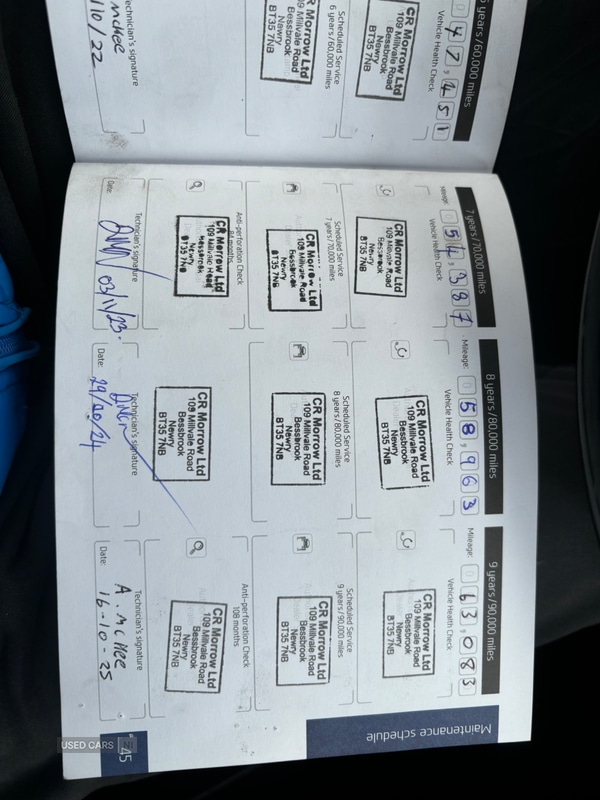 6 years/60,000 miles
0 47,451
Vehicle Health Check
CR Morrow Ltd
109 Millvale Road
Bessbrook
Newry
BT35 7NB
Scheduled Service
6 years/60,000 miles
CR Morrow Ltd
109 Millvale Road
Bessbrook
Newry
BT35 7NB
Technician's signature
McKee
/10/22
7 years/70,000 miles
Mileage: 0 54,387
Vehicle Health Check
CR Morrow Ltd
109 Millvale Road
Bessbrook
Newry
BT35 7NB
Scheduled Service
7 years/70,000 miles
CR Morrow Ltd
109 Millvale Road
Bessbrook
Newry
BT35 7NB
Anti-perforation Check
84 months
CR Morrow Ltd
109 Millvale Road
Bessbrook
Newry
BT35 7NB
Technician's signature
Date: 03/11/23.
8 years/80,000 miles
Mileage: 0 58,963
Vehicle Health Check
CR Morrow Ltd
109 Millvale Road
Bessbrook
Newry
BT35 7NB
Scheduled Service
8 years/80,000 miles
CR Morrow Ltd
109 Millvale Road
Bessbrook
Newry
BT35 7NB
CR Morrow Ltd
109 Millvale Road
Bessbrook
Newry
BT35 7NB
Technician's signature
Date:
9 years/90,000 miles
Mileage: 0 63,083
Vehicle Health Check
CR Morrow Ltd
109 Millvale Road
Bessbrook
Newry
BT35 7NB
Scheduled Service
9 years/90,000 miles
CR Morrow Ltd
109 Millvale Road
Bessbrook
Newry
BT35 7NB
Anti-perforation Check
108 months
CR Morrow Ltd
109 Millvale Road
Bessbrook
Newry
BT35 7NB
Technician's signature
A. McKee
Date: 16-10-25
Maintenance schedule
45
USED CARS NI